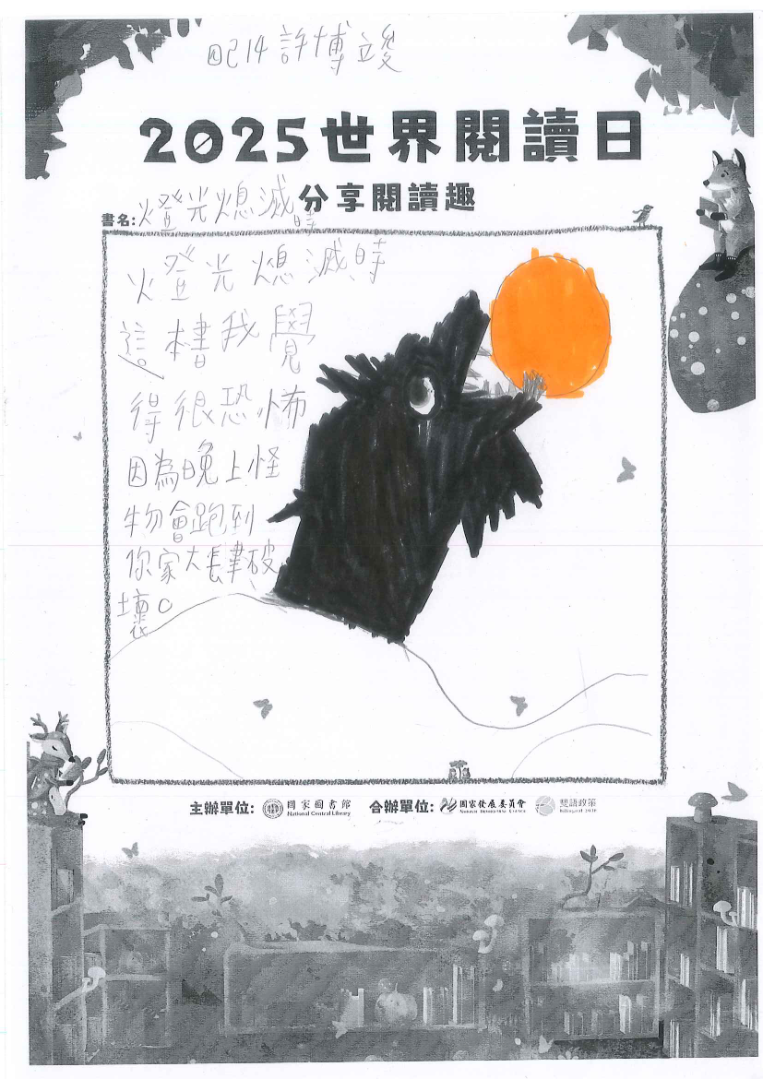 四己14 許博竣
2025世界閱讀日
分享閱讀趣
書名:燈光熄滅時
燈光熄滅時
這樓我覺
得很恐怖
因為晚上怪
物會跑到
你家大肆破
壞。
主辦單位: 國家圖書館 合辦單位: 國家發展委員會 雙語政策
National Central Library